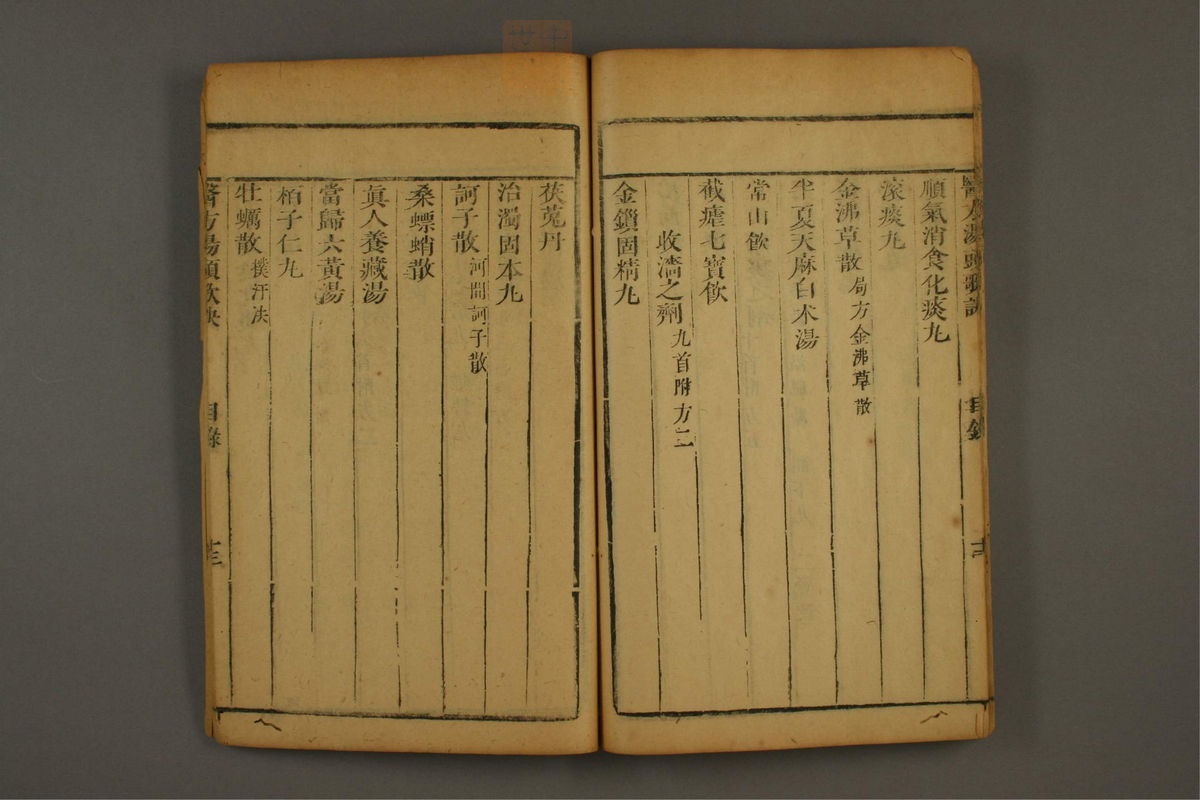 醫方湯頭歌訣 目錄 十二
順氣消食化痰丸
滚痰丸
金沸草散 局方金沸草散
半夏天麻白术湯
常山飲
截瘧七寶飲
收濇之劑 九首附方二
金鎖固精丸
茯菟丹
治濁固本丸
訶子散 河間訶子散
桑螵蛸散
眞人養藏湯
當歸六黃湯
栢子仁丸
牡蠣散 撲汗法
醫方湯頭歌訣 目錄 十三